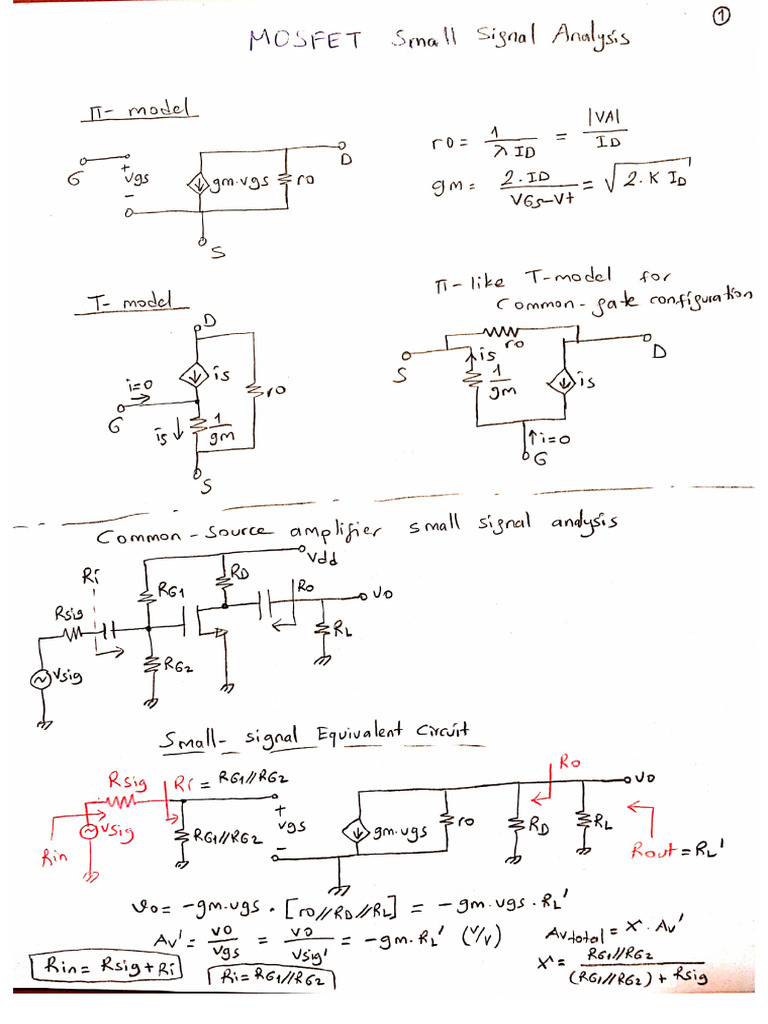 ①
MOSFET Small Signal Analysis
Π- model
G
+
vgs
-
gm.vgs
ro
D
S
ro = 1/(λ ID) = |VA|/ID
gm = 2.ID/(VGS-Vt) = √(2.K ID)
T- model
D
is
i=0
G
is ↓
1/gm
ro
S
Π-like T-model for
Common-gate configuration
ro
S
is
1/gm
is
D
↑i=0
G
Common-Source amplifier small signal analysis
Vdd
Ri
RG1
RD
Ro
VO
Rsig
RL
RG2
Vsig
Small-signal Equivalent Circuit
Ro
Rsig
Ri = RG1//RG2
VO
+
vgs
-
Vsig
RG1//RG2
gm.vgs
ro
RD
RL
Rin
Rout = RL'
vo = -gm.vgs . [ro//RD//RL] = -gm.vgs.RL'
Av' = vo/vgs = vo/vsig' = -gm.RL' (V/V)
Avtotal = X . Av'
Rin = Rsig + Ri
Ri = RG1//RG2
X = RG1//RG2/((RG1//RG2) + Rsig)